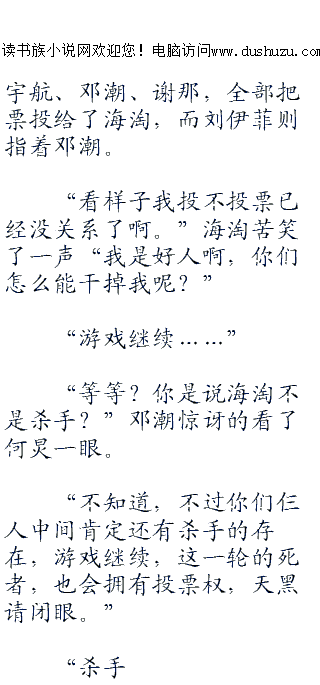 读书族小说网欢迎您！电脑访问www.dushuzu.com
宇航、邓潮、谢那，全部把
票投给了海淘，而刘伊菲则
指着邓潮。
“看样子我投不投票已
经没关系了啊。”海淘苦笑
了一声“我是好人啊，你们
怎么能干掉我呢？”
“游戏继续……”
“等等？你是说海淘不
是杀手？”邓潮惊讶的看了
何炅一眼。
“不知道，不过你们仨
人中间肯定还有杀手的存
在，游戏继续，这一轮的死
者，也会拥有投票权，天黑
请闭眼。”
“杀手